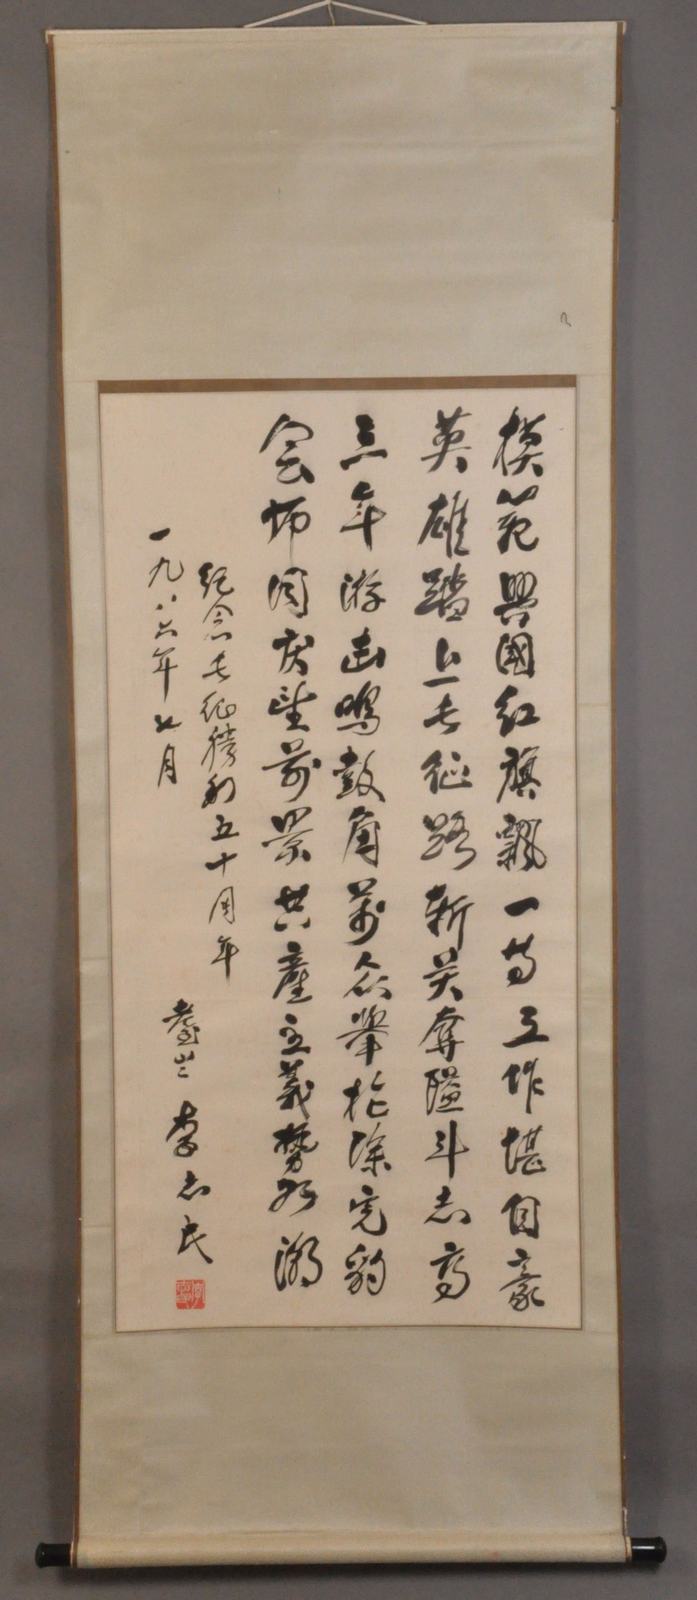 模范興國红旗飘一等工作堪自豪
英雄踏上长征路斩关夺隘斗志高
三年游击鸣鼓角万众举枪除宪豹
会师同庆望前景共產主義势如潮
纪念长征勝利五十周年
一九八六年七月
李志民